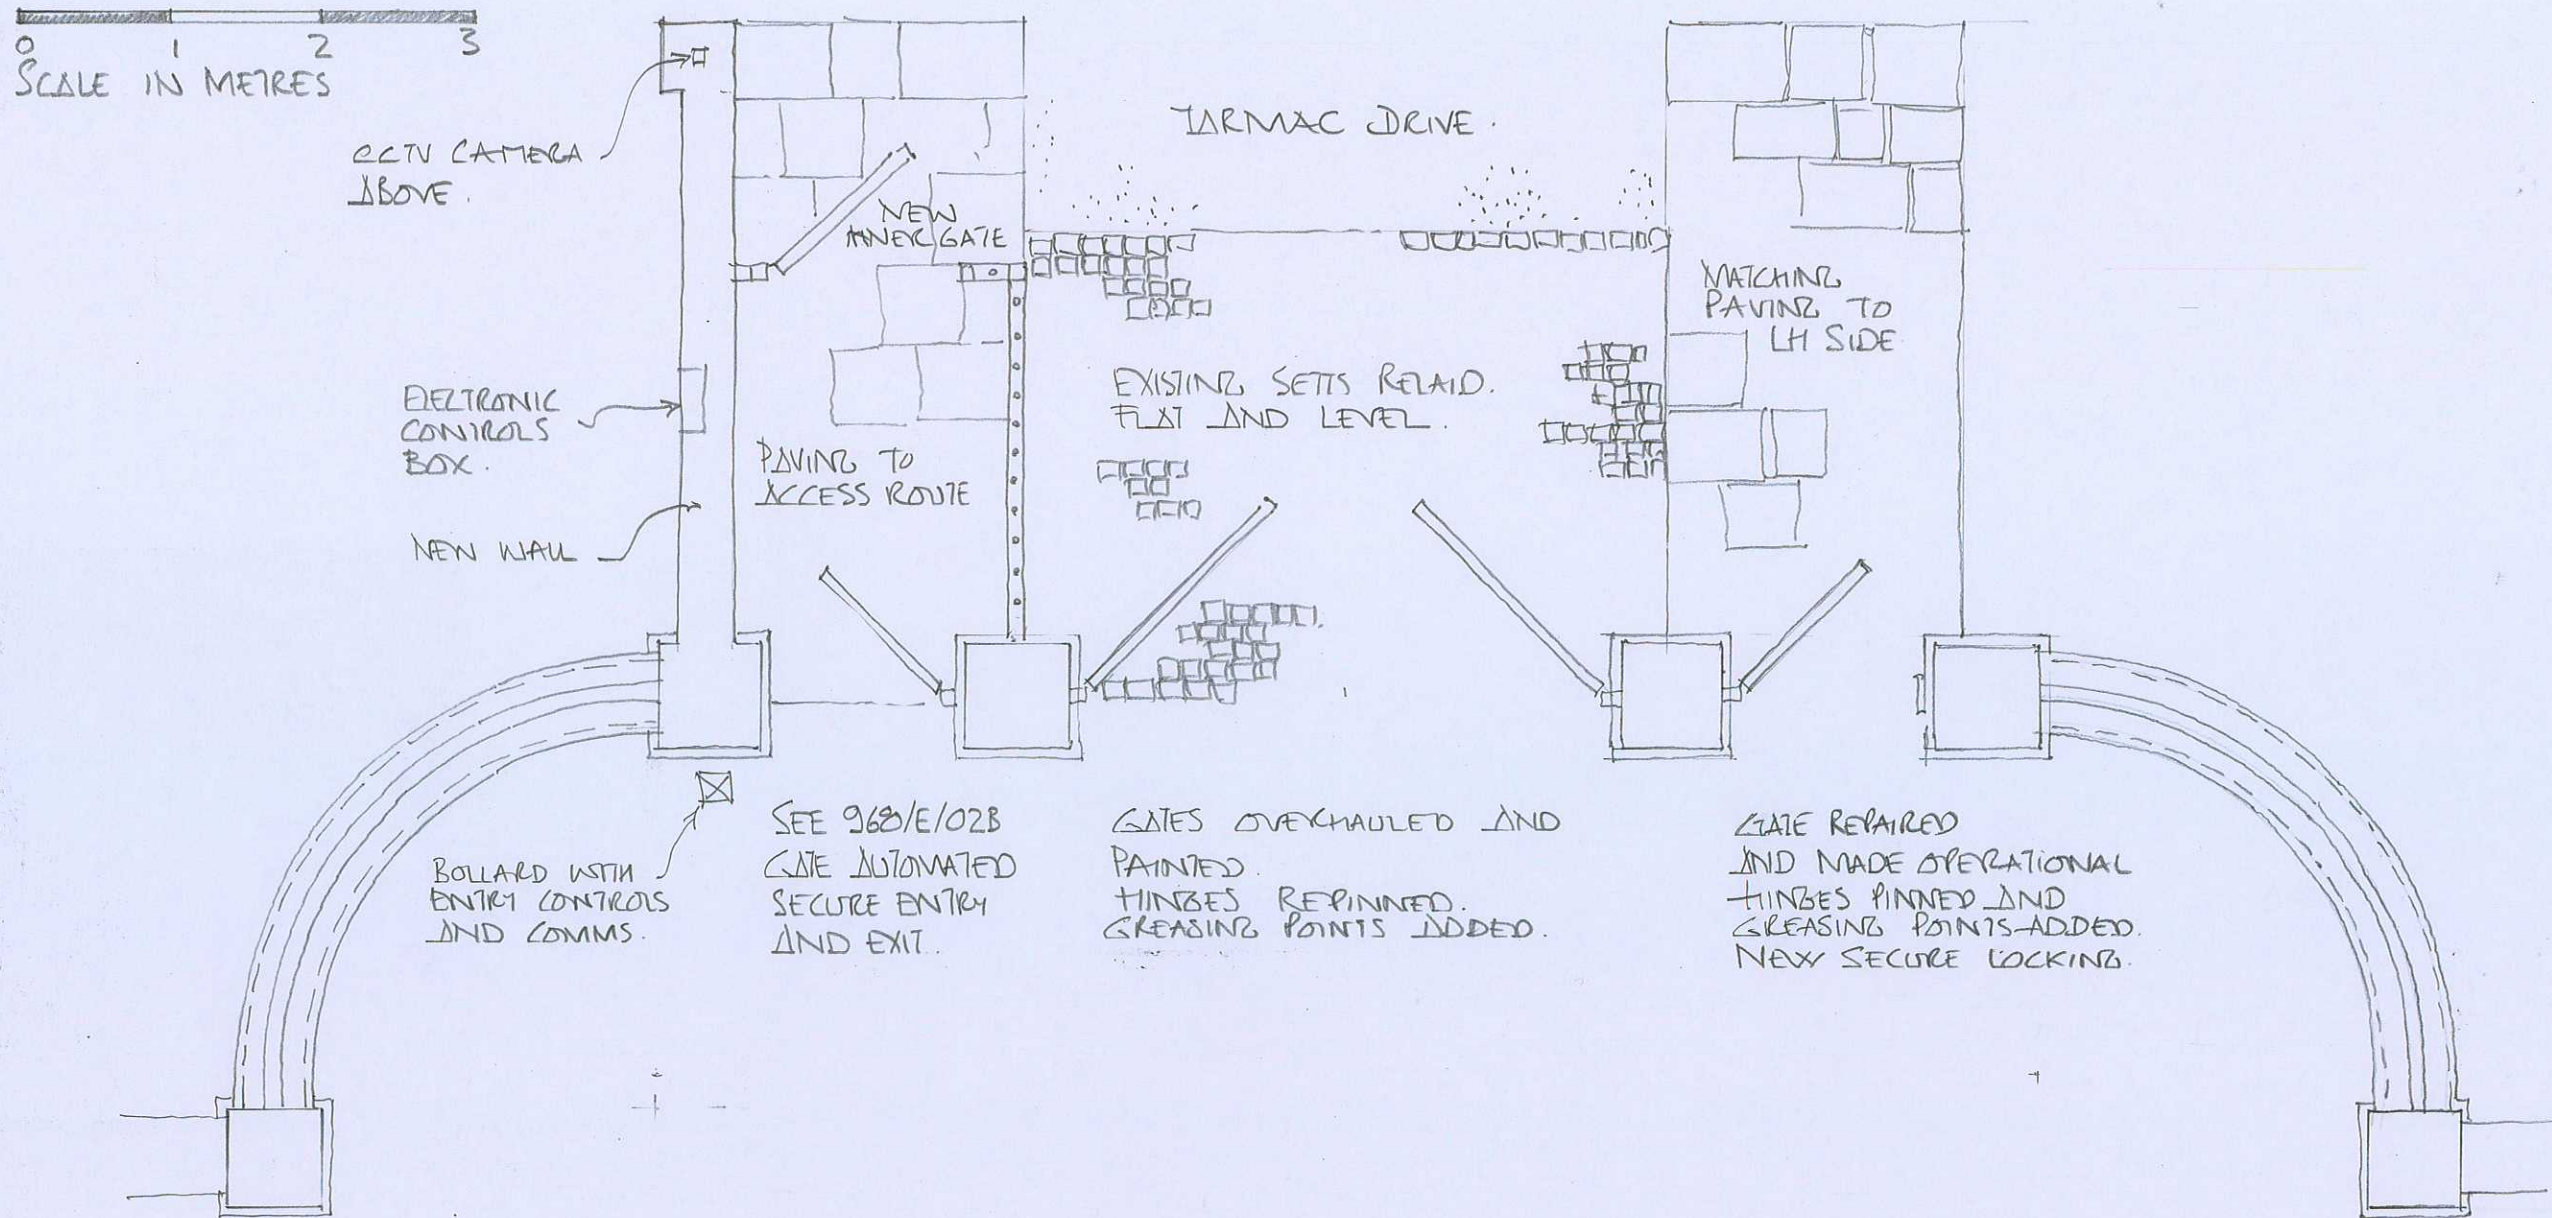 0 1 2 3
SCALE IN METRES
CCTV CAMERA
ABOVE.
TARMAC DRIVE.
NEW
INNER GATE
MATCHING
PAVING TO
LH SIDE
ELECTRONIC
CONTROLS
BOX.
EXISTING SETTS RELAID.
FLAT AND LEVEL.
PAVING TO
ACCESS ROUTE
NEW WALL
BOLLARD WITH
ENTRY CONTROLS
AND COMMS.
SEE 968/E/02B
GATE AUTOMATED
SECURE ENTRY
AND EXIT.
GATES OVERHAULED AND
PAINTED.
HINGES REPINNED.
GREASING POINTS ADDED.
GATE REPAIRED
AND MADE OPERATIONAL
HINGES PINNED AND
GREASING POINTS ADDED.
NEW SECURE LOCKING.